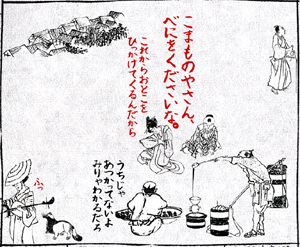 こまものやさん、
べにをくださいな。
これからおとこを
ひっかけてくるんだから
うちじゃ
あつかってないよ
みりゃわかるだろ
ふっ